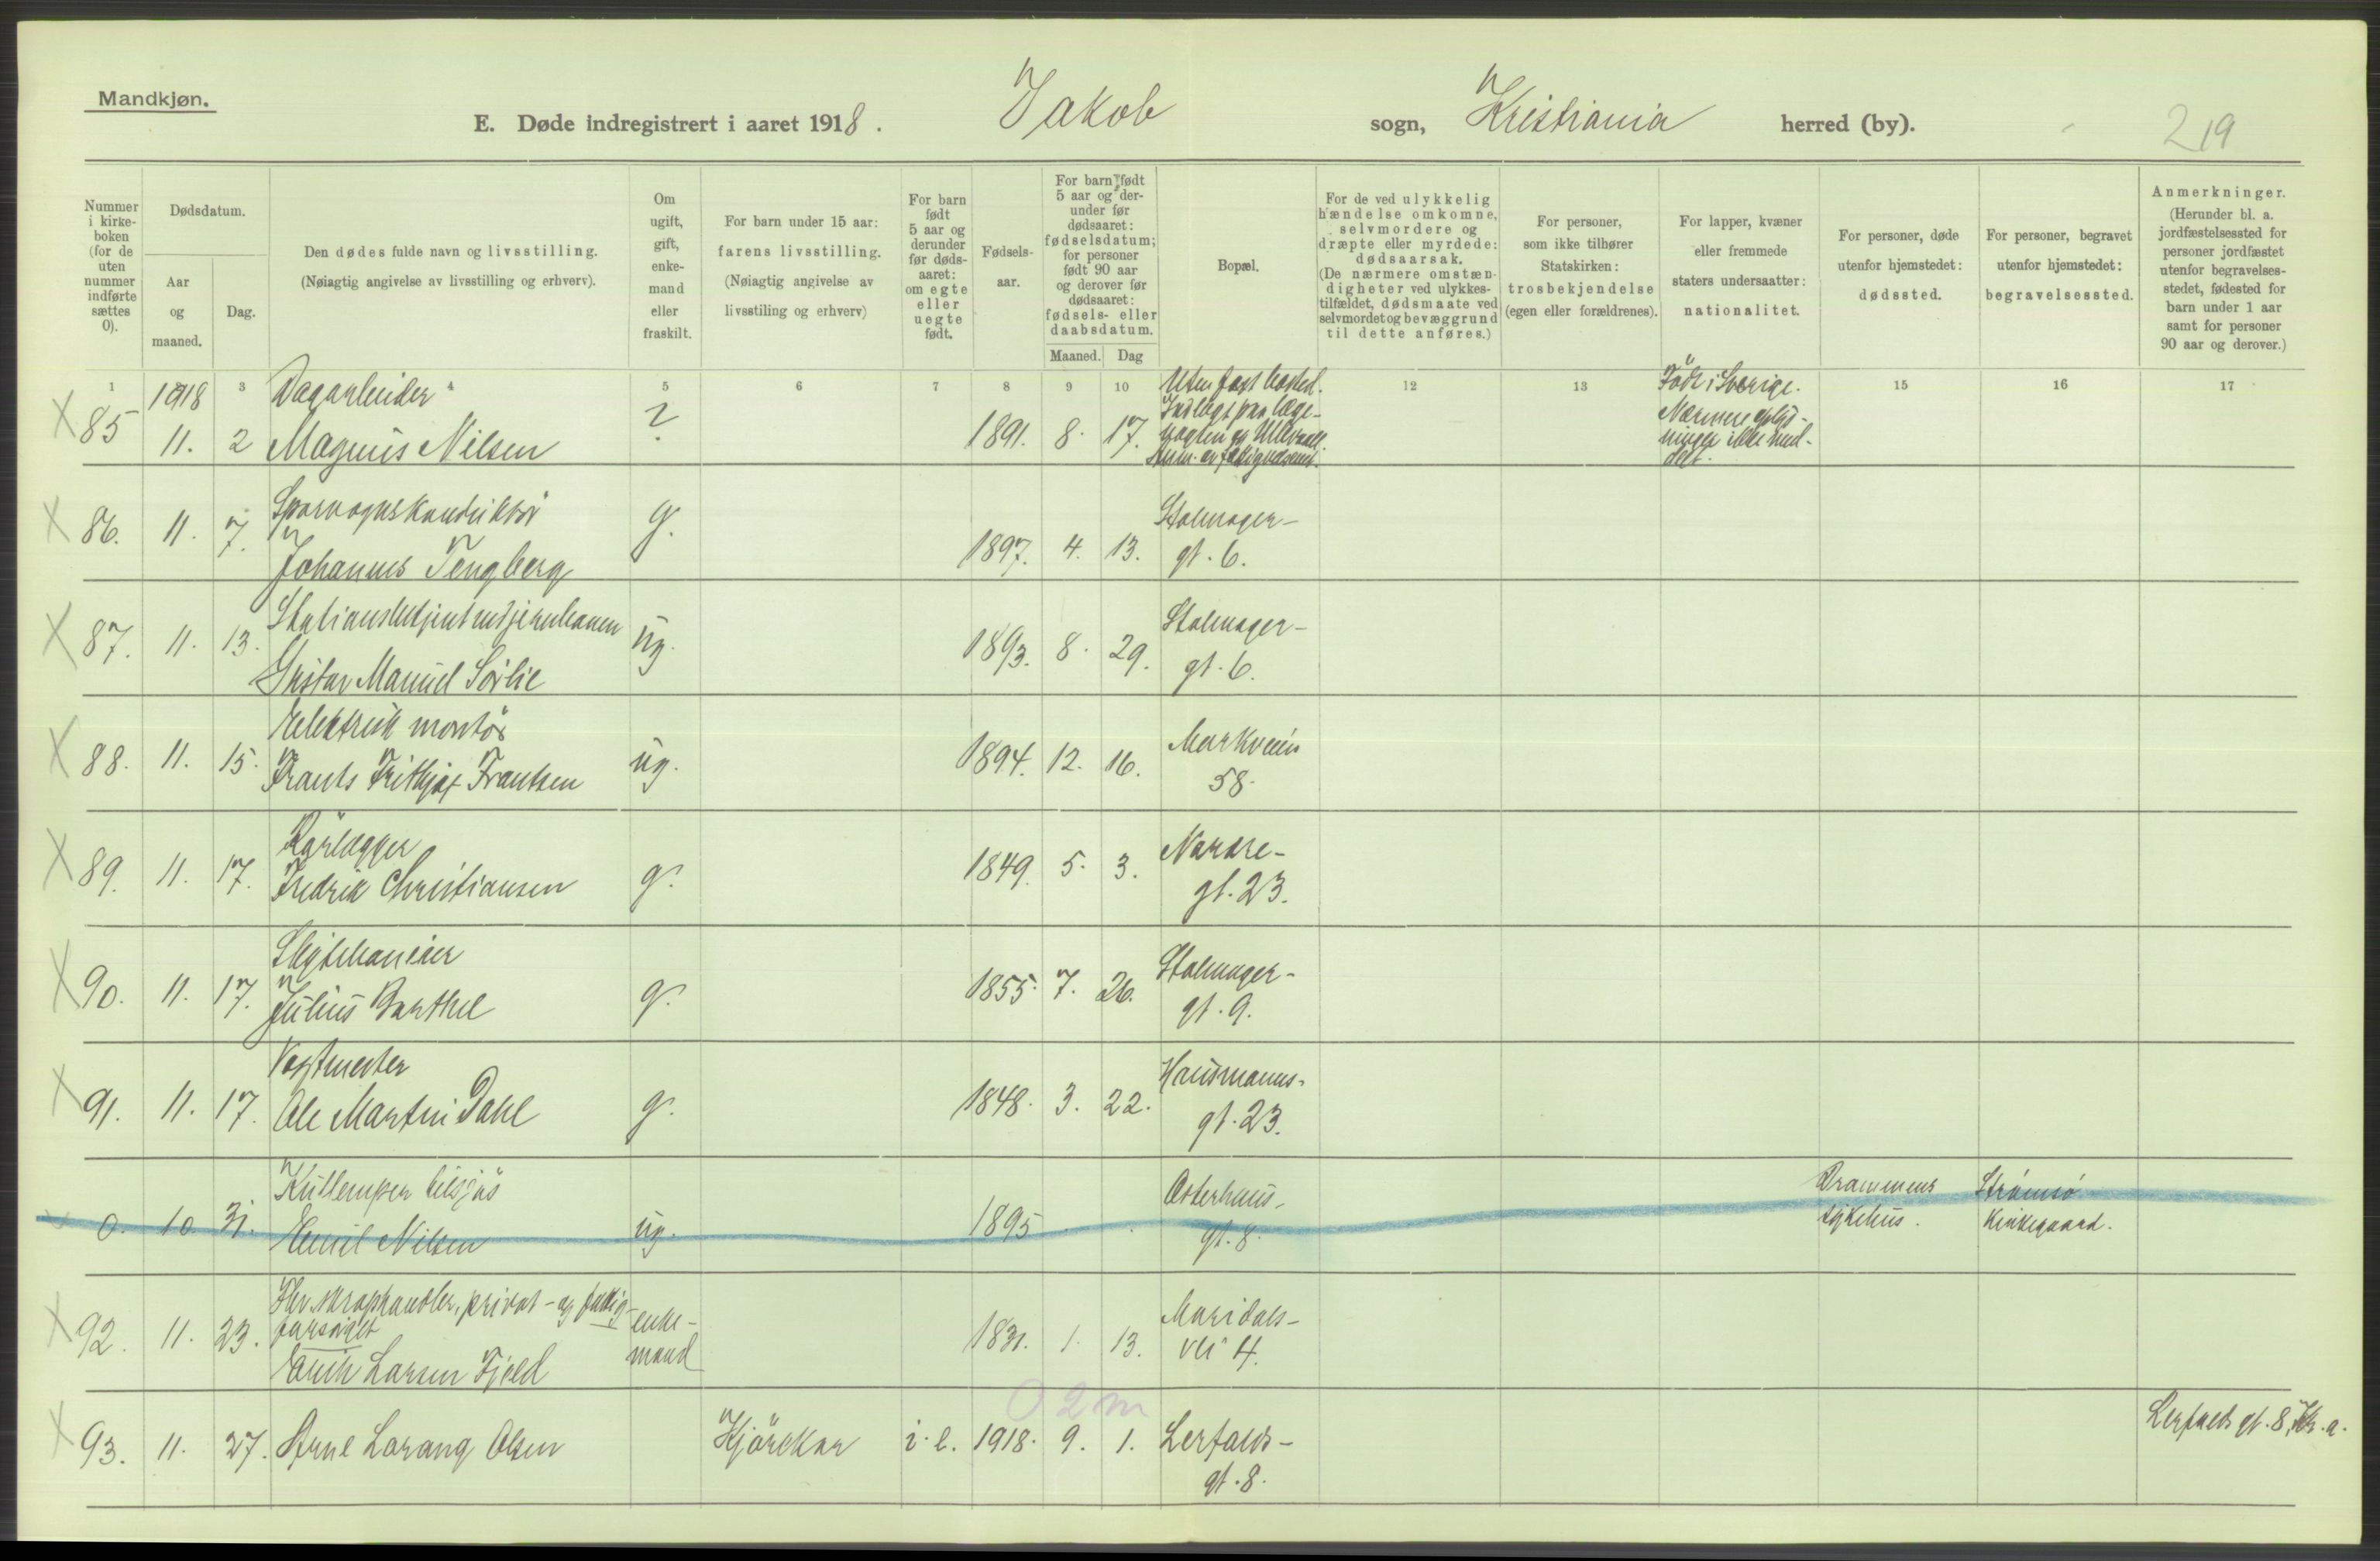 Mandkjøn.
E. Døde indregistrert i aaret 1918. Jakob sogn, Kristiania herred (by). 219
Nummer i kirke-boken (for de uten nummer indførte sættes 0).
Dødsdatum.
Aar og maaned.
Dag.
Den dødes fulde navn og livsstilling.
(Nøiagtig angivelse av livsstilling og erhverv).
Om ugift, gift, enke-mand eller fraskilt.
For barn under 15 aar: farens livsstilling.
(Nøiagtig angivelse av livsstiling og erhverv)
For barn født 5 aar og derunder før døds-aaret: om egte eller uegte født.
Fødsels-aar.
For barn født 5 aar og der-under før dødsaaret: fødselsdatum; for personer født 90 aar og derover før dødsaaret: fødsels- eller daabsdatum.
Maaned. Dag
Bopæl.
For de ved ulykkelig hændelse omkomne, selvmordere og dræpte eller myrdede: dødsaarsak.
(De nærmere omstæn-digheter ved ulykkes-tilfældet, dødsmaate ved selvmordet og bevæggrund til dette anføres.)
For personer, som ikke tilhører Statskirken: trosbekjendelse (egen eller forældrenes).
For lapper, kvæner eller fremmede staters undersaatter: nationalitet.
For personer, døde utenfor hjemstedet: dødssted.
For personer, begravet utenfor hjemstedet: begravelsessted.
Anmerkninger.
(Herunder bl. a. jordfæstelsessted for personer jordfæstet utenfor begravelses-stedet, fødested for barn under 1 aar samt for personer 90 aar og derover.)
1 3 4 5 6 7 8 9 10 12 13 15 16 17
1918 Dagarbeider Uten fast bosted. Født i Sverige.
85 11. 2 Magnus Nilsen ? 1891. 8. 17. Indlagt paa læge-vagten og Ullevaal Nærmere oplys-ninger ikke med-delt.
Sporvognskonduktör Stolmager-
86. 11. 7. Johannes Tengberg g. 1897. 4. 13. gt. 6.
Stationsbetjent ved jernbanen Stolmager-
87. 11. 13. Gustav Manuel Sörlie ug. 1893. 8. 29. gt. 6.
Elektrisk montör Markveien
88. 11. 15. Frants Frithjof Frantsen ug. 1894. 12. 16. 58.
Rörlægger Nordre-
89. 11. 17. Fredrik Christiansen g. 1849. 5. 3. gt. 23.
Stolmager-
90. 11. 17. Julius Barthel g. 1855. 7. 26. gt. 9.
Vagtmester Hausmanns-
91. 11. 17. Ole Martin Dahl g. 1848. 3. 22. gt. 23.
Kullemper tilsjös Osterhaus- Drammens Strömsö
0. 10 31. Emil Nilsen ug. 1895 gt. 8. sykehus. kirkegaard.
Fhv. skraphandler, privat- og fattig-forsörget Maridals-
92. 11. 23. Erik Larsen Fjeld enke-mand 1831. 1. 13. vei 4.
0 2 m
93. 11. 27. Arne Lorang Olsen Kjörekar i. e. 1918. 9. 1. Lerfalds- Lerfalds gt. 8, Kr.a.
gt. 8.